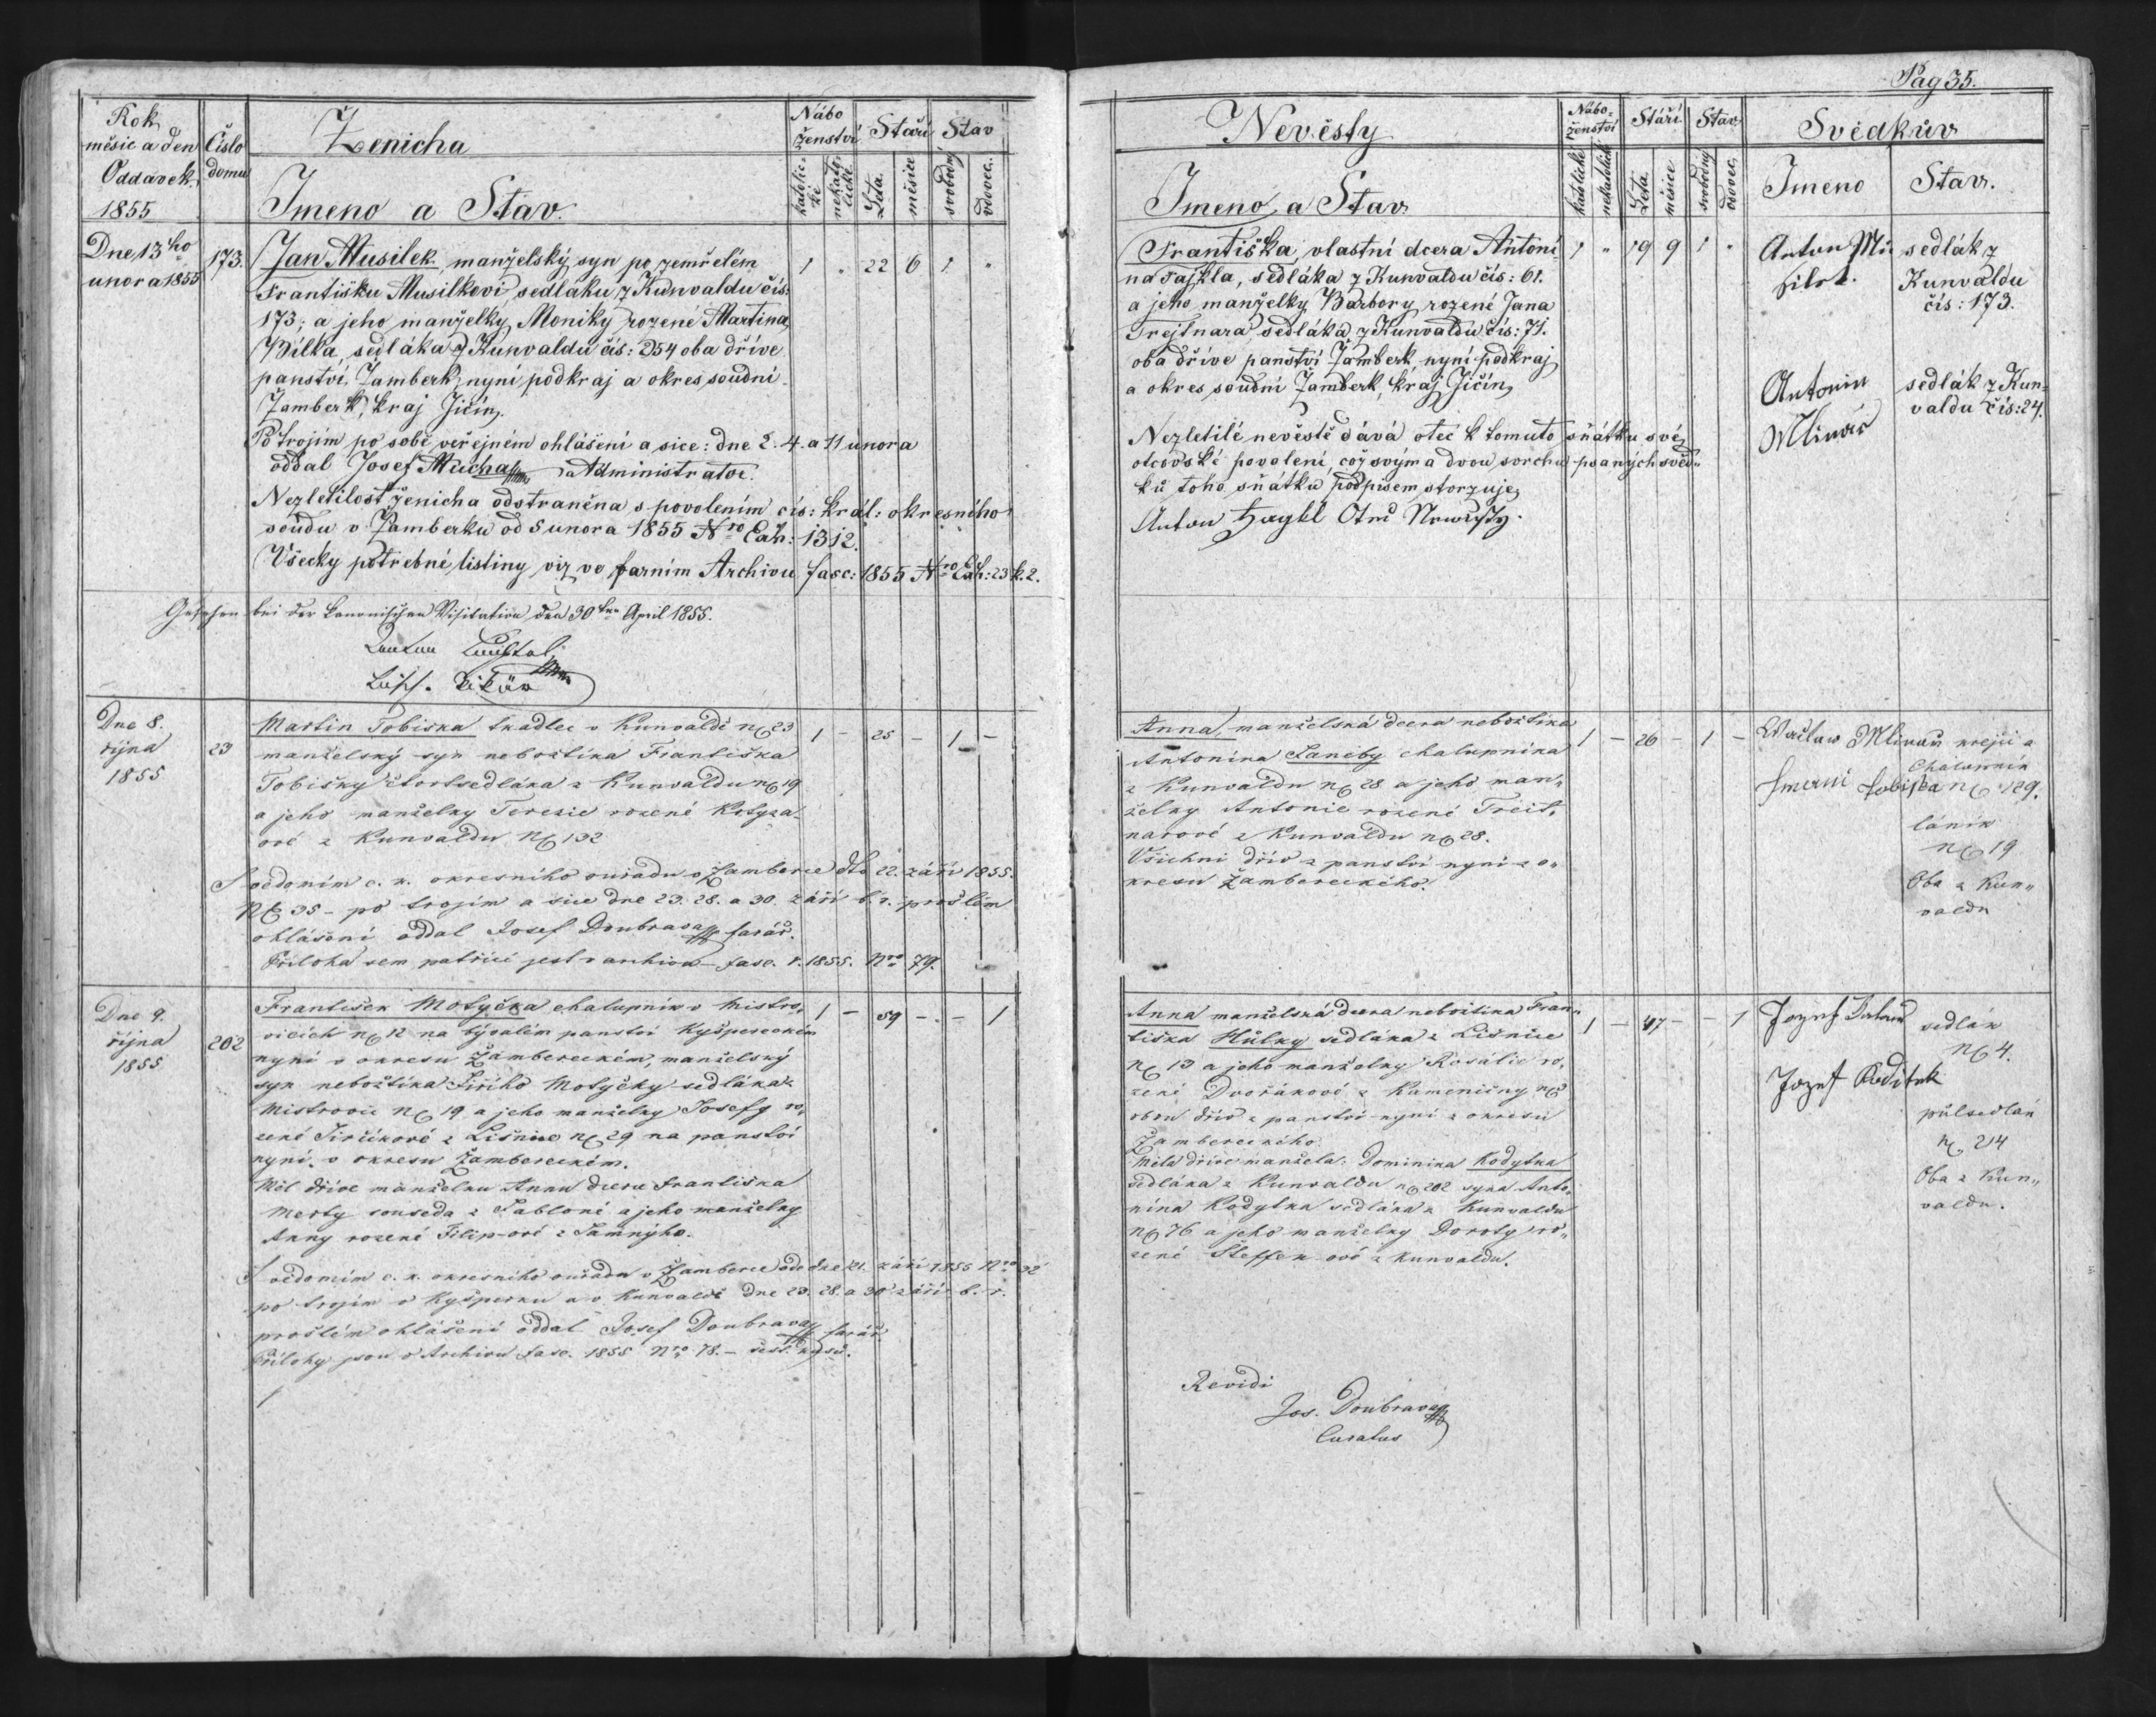 Pag 35.
Rok
měsíc a den
Oddávek.
1855
Číslo
domu
Ženicha
Jmeno a Stav.
Nábo
ženství
katolic-
ké
nekato-
lické
Stáří
Léta.
měsíce
Stav
svobodný
vdovec.
Dne 13ho
unora 1855
173.
Jan Musilek, manželský syn po zemřelém
Františku Musilkovi sedláku z Kunvaldu čís:
173; a jeho manželky Moniky rozené Martina
Bílka, sedláka z Kunvaldu čís: 254 oba dříve
panství Žamberk, nyní podkraj a okres soudní
Žamberk, kraj Jičín,
1 " 22 6 1 "
Po trojím po sobě veřejném ohlášení a sice: dne 2. 4. a 11 unora
oddal Josef Mucha Administrator.
Nezletilost ženicha odstraněna s povolením cís: král: okresního
soudu v Žamberku od 5 unora 1855 Nro Exh: 1312.
Všecky potřebné listiny viz ve farním Archivu fasc: 1855 Nro Exh: 23 k. 2.
Gesehen bei der kanonischen Visitation den 30ten April 1855.
Dne 8.
října
1855
23
Martin Tobiska tkadlec v Kunvaldě N 23
manželský syn nebožtíka Františka
Tobišky čtvrtsedláka z Kunvaldu N 19
a jeho manželky Terezie rozené Kotyza-
ové z Kunvaldu N 132
1 - 25 - 1 -
S vědomím c. k. okresního ouřadu v Žamberce dto 22. září 1855.
N 35 - po trojím a sice dne 23. 28. a 30. září t. r. prošlém
ohlášení oddal Josef Doubrava farář.
Příloha sem patřící jest v archivu fasc. r. 1855. Nro 79.
Dne 9.
října
1855
202
František Motyčka chalupník v Mistro-
vicích N 12 na bývalém panství Kyšpereckém
nyní v okresu Žambereckém, manželský
syn nebožtíka Jiřího Motyčky sedláka z
Mistrovic N 19 a jeho manželky Josefy ro-
zené Jirčíkové z Lišnice N 29 na panství
nyní v okresu Žambereckém.
Měl dříve manželku Annu dceru Františka
Merty souseda z Jabloné a jeho manželky
Anny rozené Filip-ové z Jamného.
1 - 59 - - 1
S vědomím c. k. okresního ouřadu v Žamberce ode dne 21. září 1855 Nro 32
po trojím v Kyšperku a v Kunvaldě dne 23. 28. a 30 září t. r.
prošlém ohlášení oddal Josef Doubrava farář.
Přílohy jsou v Archivu fasc. 1855 Nro 78.
Nevěsty
Jmeno a Stav
Nábo-
ženství
katolické
nekatolické
Stáří
Léta.
měsíce
Stav
svobodný
vdovec.
Svědkův
Jmeno
Stav.
Františka, vlastní dcera Antoní-
na Fajkla, sedláka z Kunvaldu čís: 61.
a jeho manželky Barbory rozené Jana
Trejtnara sedláka z Kunvaldu čís: 71.
oba dříve panství Žamberk, nyní podkraj
a okres soudní Žamberk, kraj Jičín,
1 " 19 9 1 "
Anton Mu
silek.
sedlák z
Kunvaldu
čís: 173.
Antonin
Mlinař
sedlák z Kun-
valdu čís: 24.
Nezletilé nevěstě dává otec k tomuto sňátku své
otcovské povolení, což svým a dvou svrchu psaných svěd-
ků toho sňátku podpisem stvrzuje,
Anna manželská dcera nebožtíka
Antonína Janeby chalupníka
z Kunvaldu N 28 a jeho man-
želky Antonie rozené Treit-
narové z Kunvaldu N 28.
Všichni dřív z panství nyní z o-
kresu Žambereckého.
1 - 26 - 1 -
Waclaw Mlinař
krejčí a
chalupník
N 129.
Tobiska
láník
N 19
Oba z Kun-
valdu
Anna manželská dcera nebožtíka Fran-
tiška Hůlky sedláka z Lišnice
N 13 a jeho manželky Rosálie ro-
zené Dvořákové z Kameničny N
obou dřív z panství nyní z okresu
Žambereckého.
Měla dříve manžela: Dominika Kodytka
sedláka z Kunvaldu N 202 syna Anto-
nína Kodytka sedláka z Kunvaldu
N 76 a jeho manželky Doroty ro-
zené Steffek-ové z Kunvaldu.
1 - 47 - - 1
Jozef
sedlák
N 4.
Jozef Koditek
půlsedlák
N 214
Oba z Kun-
valdu.
Revidi
Jos. Doubrava
Curatus